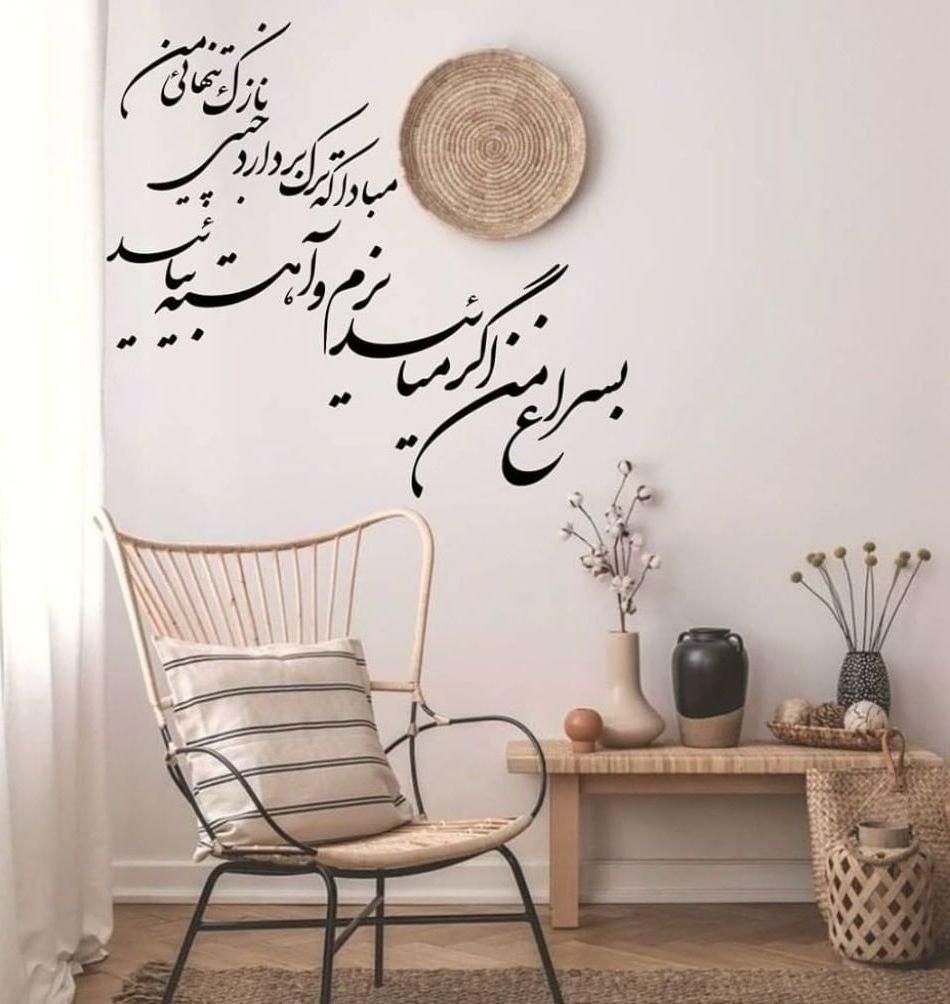 بسراغ من اگر میائید نرم و آهسته بیائید
مبادا که ترک بردارد چینی
نازک تنهائی من